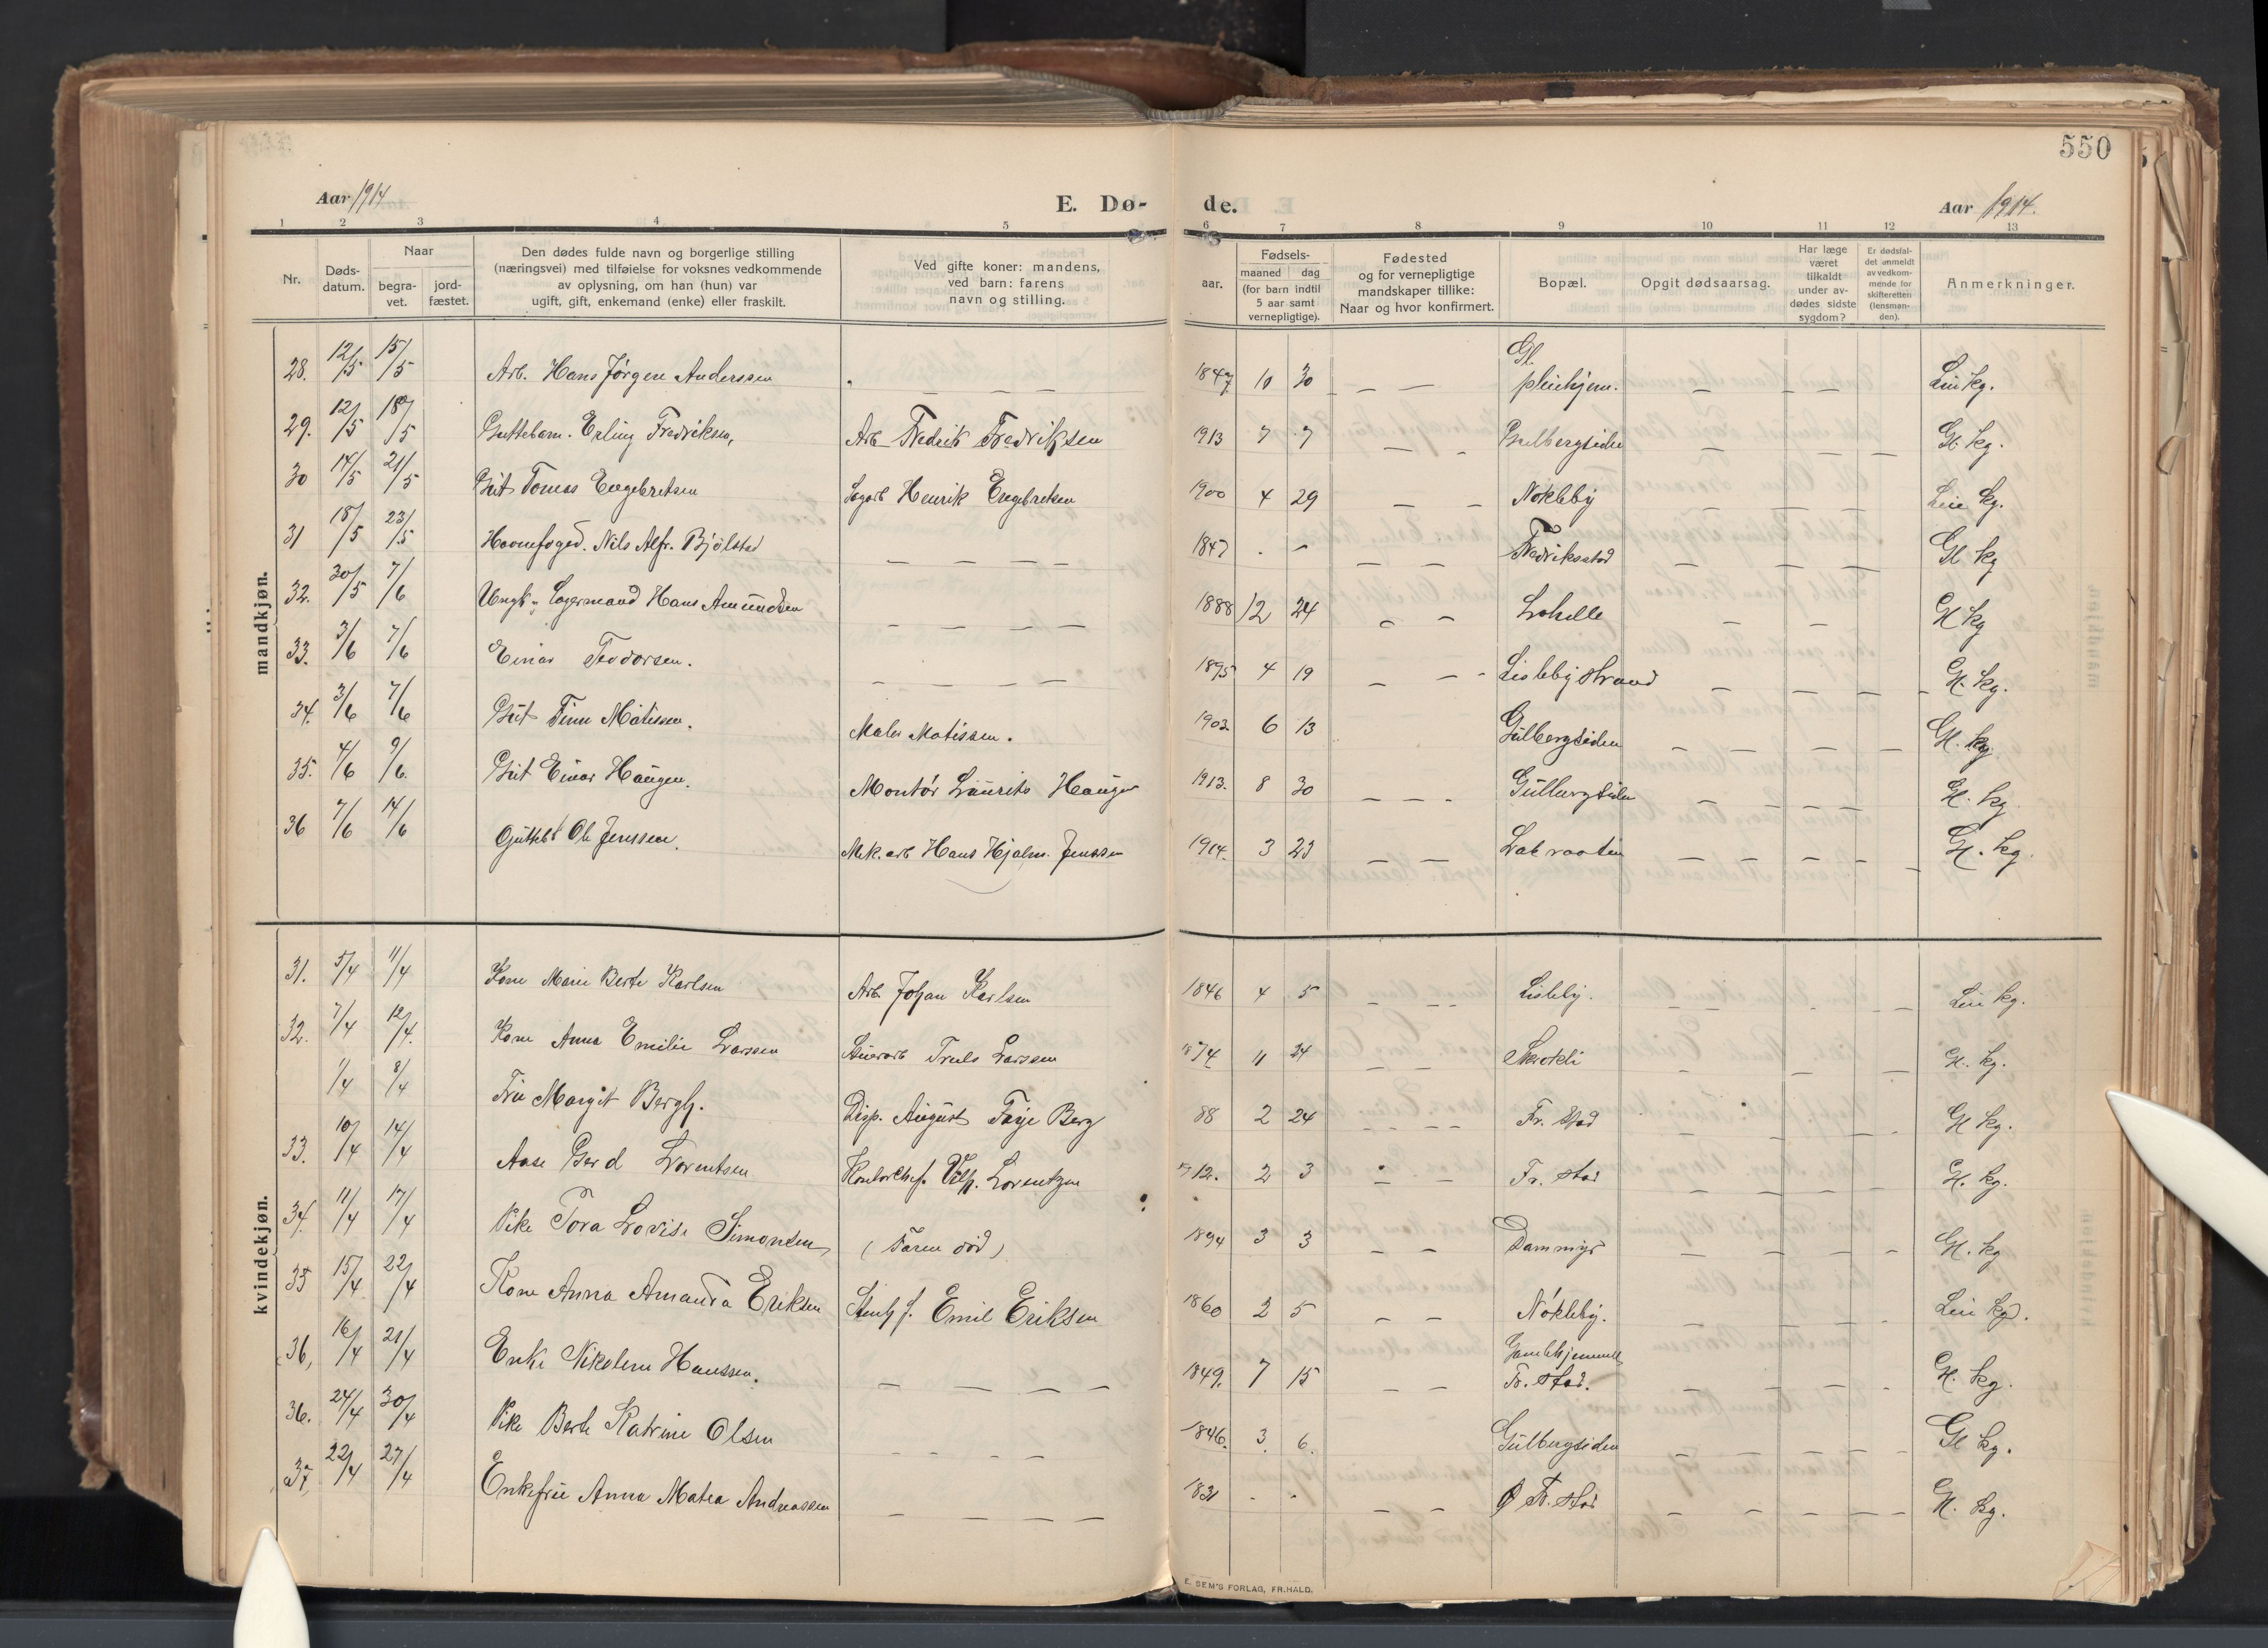 550
Aar 1914
E. Dø-
de.
Aar 1914.
1 2 3 4 5 6 7 8 9 10 11 12 13
Nr.
Døds-
datum.
Naar
begra-
vet.
jord-
fæstet.
Den dødes fulde navn og borgerlige stilling
(næringsvei) med tilføielse for voksnes vedkommende
av oplysning, om han (hun) var
ugift, gift, enkemand (enke) eller fraskilt.
Ved gifte koner: mandens,
ved barn: farens
navn og stilling.
Fødsels-
aar.
maaned dag
(for barn indtil
5 aar samt
vernepligtige).
Fødested
og for vernepligtige
mandskaper tillike:
Naar og hvor konfirmert.
Bopæl.
Opgit dødsaarsag.
Har læge
været
tilkaldt
under av-
dødes sidste
sygdom?
Er dødsfal-
det anmeldt
av vedkom-
mende for
skifteretten
(lensman-
den).
Anmerkninger.
mandkjøn.
28. 12/5 15/5 Arb. Hans Jørgen Anderssen — — 1847 10 30 — — Gl. pleiehjem. — — — Leie kg.
29. 12/5 18/5 Guttebarn. Erling Fredriksen, Arb Fredrik Fredriksen 1913 7 7 — - Gulbergsiden — — Gl. kg.
30 14/5 21/5 Gut Tomas Engebretsen Sagarb Henrik Engebretsen 1900 4 29 — — Nøkleby — — Leie kg.
31 18/5 23/5 Havnefoged. Nils Alfr. Bjølstad — — — — 1847 - - — — Fredriksstad — — — — Gl kg
32. 30/5 7/6 Ungk. Lagermand Hans Amundsen — — — — 1888 12 24 — — Lahelle — — Gl kg
33. 3/6 7/6 Einar Teodorsen. — — — — 1895 4 19 — — - Lislebystrand — — — - Gl. kg.
34. 3/6 7/6 Gut Finn Matissen. Maler Matissen. 1902 6 13 Gulbergsiden — — — — Gl. kg.
35. 4/6 9/6. Gut Einar Haugen. Montør Laurits Haugen 1913. 8 30 — — - Gulbergsiden — — — — Gl. kg.
36 7/6 14/6 Guttebt Ole Jenssen. Mek. arb Hans Hjalm. Jenssen 1914. 3 23 — — — — — — - Gl. kg.
kvindekjøn.
31. 5/4 11/4 Kone Marie Berte Karlsen Arb. Johan Karlsen 1846 4 5 — — — Lisleby. — — — — Leie kg.
32. 7/4 12/4. Kone Anna Emilie Larssen Truls Larssen 1874 11 24 — — — — — Gl. kg.
1/4 8/4 Fru Margit Bergh. Disp. August Faye Berg 88 2 24 - - - - Fr. stad — — — - Gl kg.
33. 10/4 14/4 Aase Gerd Lorentsen Kontorchef. Vilh. Lorentzen 1912. 2 3 — — Fr. stad — — — — Gl. kg.
34. 11/4 17/4 Pike Tora Lovise Simonsen (Faren død) 1894 3 3 — — Dammyr — — — - Gl. kg
35 15/4 22/4 Kone Anna Amanda Eriksen Emil Eriksen 1860 2 5 — — Nøkleby. — — — - Leie kg.
36, 16/4 21/4 Enke Nikoline Hanssen. — — — — 1849. 7 15 — — Gamlehjemmet Fr. stad. — — — - Gl. kg.
36. 24/4 30/4 Pike Berte Katrine Olsen - - — — 1846. 3. 6. Gulbergsiden — — — — Gl kg.
37, 22/4 27/4 Enkefrue Anna Matea Andreassen — — — — 1831 - - — — Ø Fr. stad — — — — Gl. kg.
E. SEM'S FORLAG, FR.HALD.